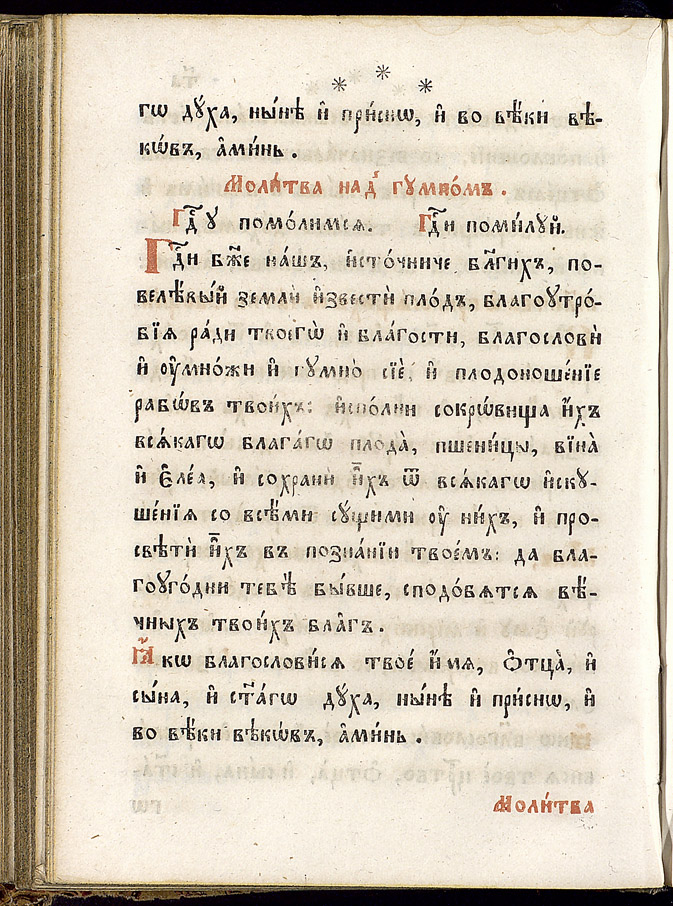 * * *
гѡ дꙋ́ха, ны́нѣ и҆ при́снѡ, и҆ во вѣ́ки вѣ-
кѡ́въ, а҆ми́нь.
Моли́тва над̾ гꙋмно́мъ.
Гдⷭ҇ꙋ помо́лимсѧ. Гдⷭ҇и поми́лꙋй.
Гдⷭ҇и бж҃е на́шъ, и҆сто́чниче бл҃ги́хъ, по-
велѣ́вый землѝ и҆звестѝ пло́дъ, благоꙋтро́-
бїѧ ра́ди твоегѡ̀ и҆ бла́гости, благословѝ
и҆ ᲂу҆мно́жи и҆ гꙋмно̀ сїѐ, и҆ плодоноше́нїе
рабѡ́въ твои́хъ: и҆спо́лни сокрѡ́вища и҆́хъ
всѧ́кагѡ блага́гѡ плода̀, пшени́цы, вїна̀
и҆ є҆ле́а, и҆ сохранѝ и҆̀хъ ѿ всѧ́кагѡ и҆скꙋ-
ше́нїѧ со всѣ́ми сꙋ́щими ᲂу҆ ни́хъ, и҆ про-
свѣтѝ и҆̀хъ въ позна́нїи твое́мъ: да бла-
гоꙋго́дни тебѣ̀ бы́вше, сподо́бѧтсѧ вѣ́-
чныхъ твои́хъ бла̑гъ.
Ꙗ҆́кѡ благослови́сѧ твоѐ и҆́мѧ, ѻ҆ц҃а̀, и҆
сы́на, и҆ ст҃а́гѡ дꙋ́ха, ны́нѣ и҆ при́снѡ, и҆
во вѣ́ки вѣкѡ́въ, а҆ми́нь.
Моли́тва